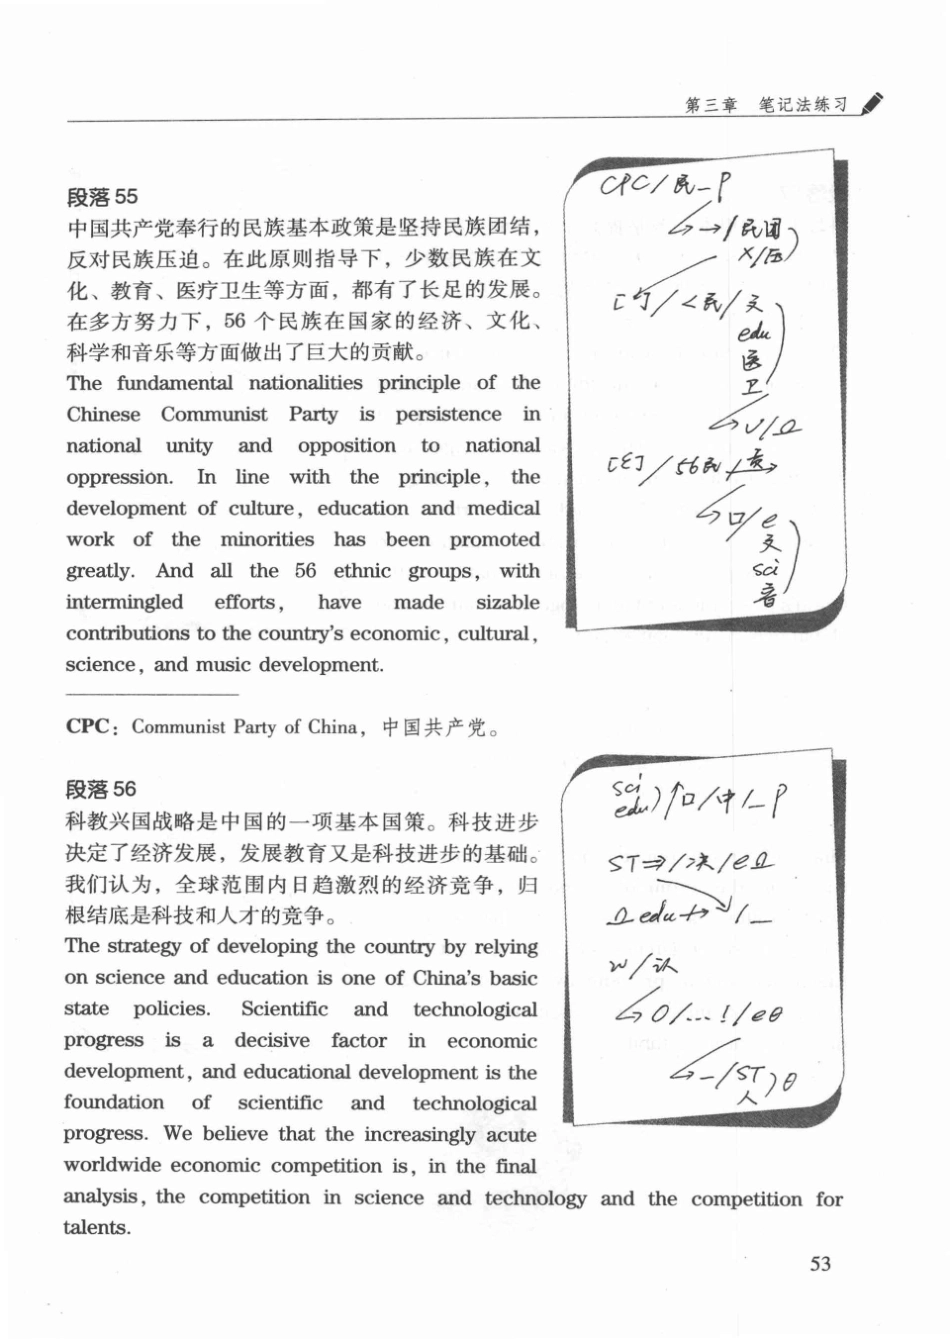 第三章 笔记法练习
段落 55
中国共产党奉行的民族基本政策是坚持民族团结，
反对民族压迫。在此原则指导下，少数民族在文
化、教育、医疗卫生等方面，都有了长足的发展。
在多方努力下，56 个民族在国家的经济、文化、
科学和音乐等方面做出了巨大的贡献。
The fundamental nationalities principle of the
Chinese Communist Party is persistence in
national unity and opposition to national
oppression. In line with the principle, the
development of culture, education and medical
work of the minorities has been promoted
greatly. And all the 56 ethnic groups, with
intermingled efforts, have made sizable
contributions to the country's economic, cultural,
science, and music development.
CPC/民-P
→/民团
×/压
[寸]/<民/文
edu
医
卫
[E]/56民+贡→
口/e
文
sci
音
CPC: Communist Party of China, 中国共产党。
段落 56
科教兴国战略是中国的一项基本国策。科技进步
决定了经济发展，发展教育又是科技进步的基础。
我们认为，全球范围内日趋激烈的经济竞争，归
根结底是科技和人才的竞争。
The strategy of developing the country by relying
on science and education is one of China's basic
state policies. Scientific and technological
progress is a decisive factor in economic
development, and educational development is the
foundation of scientific and technological
progress. We believe that the increasingly acute
worldwide economic competition is, in the final
analysis, the competition in science and technology and the competition for
talents.
sci
edu)↑口/中/_P
ST⇒/决/e
edu
w/认
O/...!/eθ
-/ST)θ
人
53